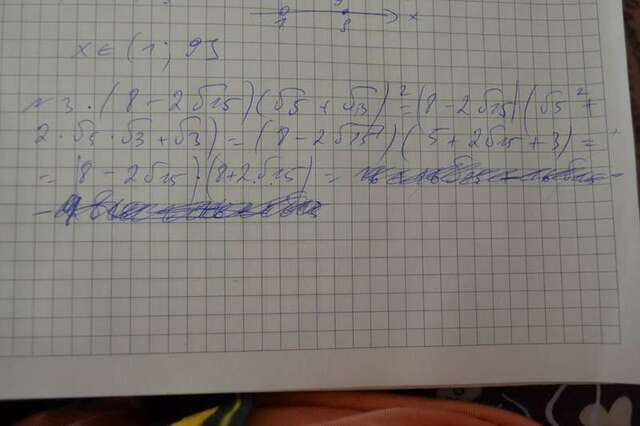 1 9 x
x ∈ (1; 9]
№3. (8 - 2√15)(√5 + √3)² = (8 - 2√15)(√5² +
2·√5·√3 + √3) = (8 - 2√15)(5 + 2√15 + 3) =
= (8 - 2√15)·(8 + 2·√15) =